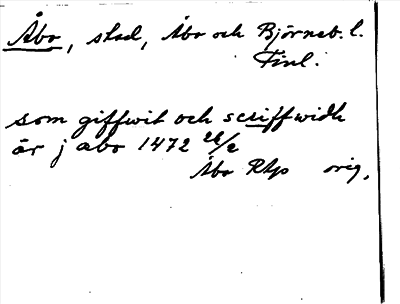 Åbo, stad, Åbo och Björneb. l.
Finl.
som giffwit och scriffwidh
är j abo 1472 26/2
Åbo Rtp orig.